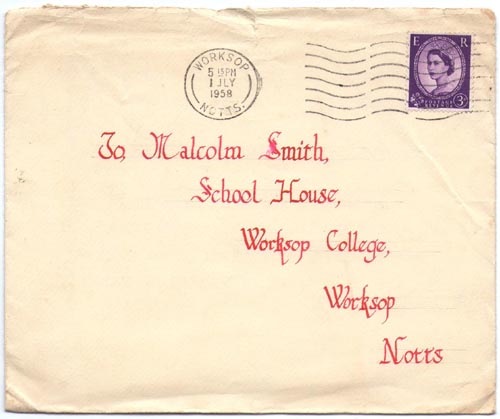 WORKSOP
5 15 PM
1 JLY
1958
NOTTS.
E R
POSTAGE REVENUE
3D
To, Malcolm Smith,
School House,
Worksop College,
Worksop
Notts